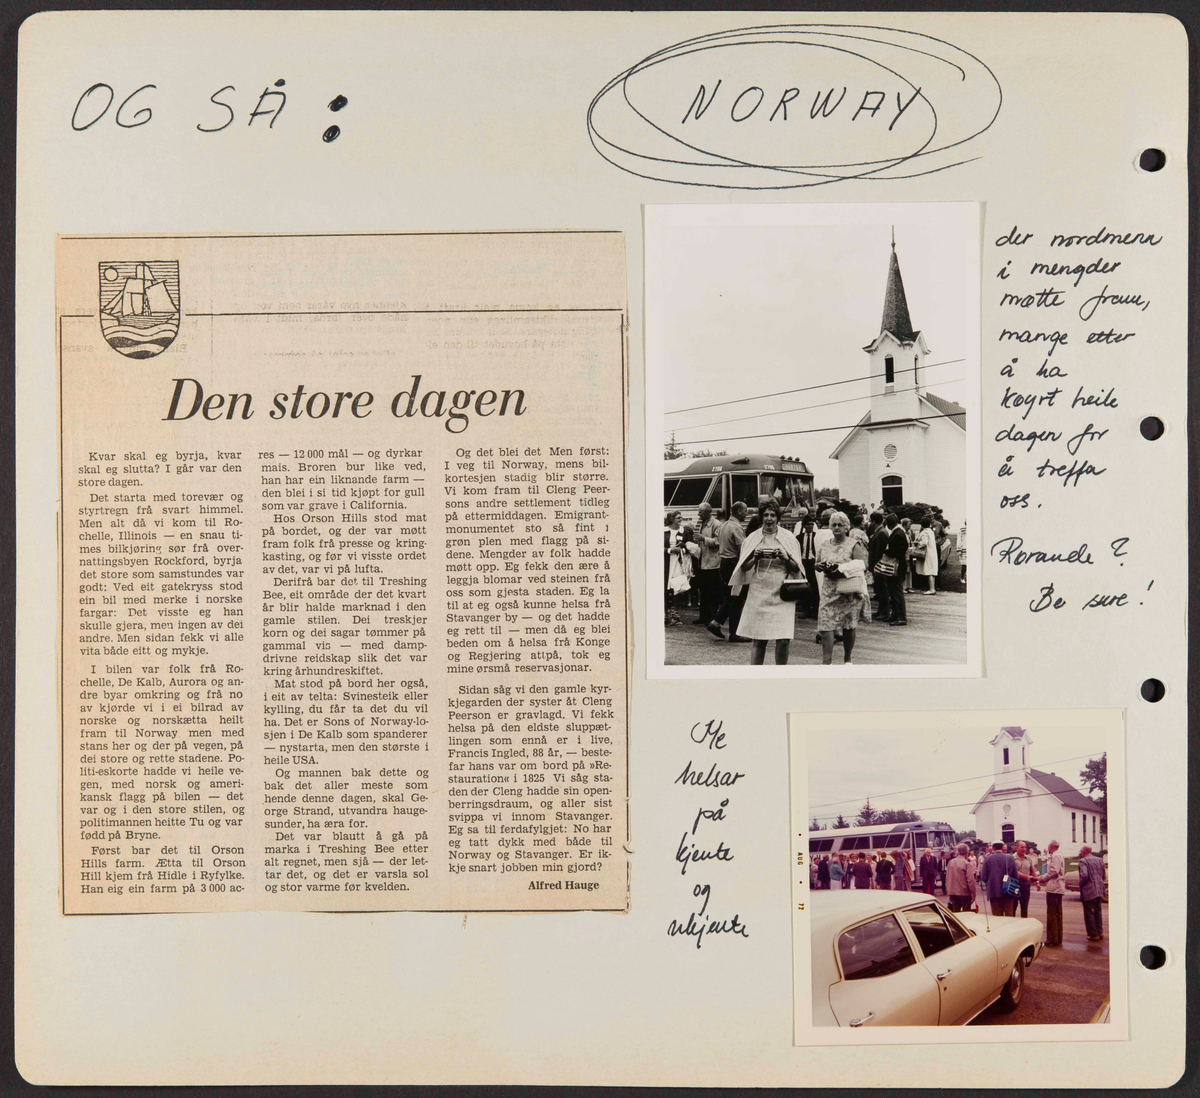 OG SÅ :
NORWAY
Den store dagen
Kvar skal eg byrja, kvar
skal eg slutta? I går var den
store dagen.
Det starta med torevær og
styrtregn frå svart himmel.
Men alt då vi kom til Ro-
chelle, Illinois — en snau ti-
mes bilkjøring sør frå over-
nattingsbyen Rockford, byrja
det store som samstundes var
godt: Ved eit gatekryss stod
ein bil med merke i norske
fargar: Det visste eg han
skulle gjera, men ingen av dei
andre. Men sidan fekk vi alle
vita både eitt og mykje.
I bilen var folk frå Ro-
chelle, De Kalb, Aurora og an-
dre byar omkring og frå no
av kjørde vi i ei bilrad av
norske og norskætta heilt
fram til Norway men med
stans her og der på vegen, på
dei store og rette stadene. Po-
liti-eskorte hadde vi heile ve-
gen, med norsk og ameri-
kansk flagg på bilen — det
var og i den store stilen, og
politimannen heitte Tu og var
fødd på Bryne.
Først bar det til Orson
Hills farm. Ætta til Orson
Hill kjem frå Hidle i Ryfylke.
Han eig ein farm på 3 000 ac-
res — 12 000 mål — og dyrkar
mais. Broren bur like ved,
han har ein liknande farm —
den blei i si tid kjøpt for gull
som var grave i California.
Hos Orson Hills stod mat
på bordet, og der var møtt
fram folk frå presse og kring-
kasting, og før vi visste ordet
av det, var vi på lufta.
Derifrå bar det til Treshing
Bee, eit område der det kvart
år blir halde marknad i den
gamle stilen. Dei treskjer
korn og dei sagar tømmer på
gammal vis — med damp-
drivne reidskap slik det var
kring århundreskiftet.
Mat stod på bord her også,
i eit av telta: Svinesteik eller
kylling, du får ta det du vil
ha. Det er Sons of Norway-lo-
sjen i De Kalb som spanderer
— nystarta, men den største i
heile USA.
Og mannen bak dette og
bak det aller meste som
hende denne dagen, skal Ge-
orge Strand, utvandra hauge-
sunder, ha æra for.
Det var blautt å gå på
marka i Treshing Bee etter
alt regnet, men sjå — der let-
tar det, og det er varsla sol
og stor varme før kvelden.
Og det blei det Men først:
I veg til Norway, mens bil-
kortesjen stadig blir større.
Vi kom fram til Cleng Peer-
sons andre settlement tidleg
på ettermiddagen. Emigrant-
monumentet sto så fint i
grøn plen med flagg på si-
dene. Mengder av folk hadde
møtt opp. Eg fekk den ære å
leggja blomar ved steinen frå
oss som gjesta staden. Eg la
til at eg også kunne helsa frå
Stavanger by — og det hadde
eg rett til — men då eg blei
beden om å helsa frå Konge
og Regjering attpå, tok eg
mine ørsmå reservasjonar.
Sidan såg vi den gamle kyr-
kjegarden der syster åt Cleng
Peerson er gravlagd. Vi fekk
helsa på den eldste sluppæt-
lingen som ennå er i live,
Francis Ingled, 88 år, — beste-
far hans var om bord på »Re-
staurationen« i 1825 Vi såg sta-
den der Cleng hadde sin open-
berringsdraum, og aller sist
svippa vi innom Stavanger.
Eg sa til ferdafylgjet: No har
eg tatt dykk med både til
Norway og Stavanger. Er ik-
kje snart jobben min gjord?
Alfred Hauge
der nordmenn
i mengder
møtte fram,
mange etter
å ha
køyrt heile
dagen for
å treffa
oss.
Rorande ?
Be sure !
Me
helsar
på
kjente
og
ukjente
AUG 72